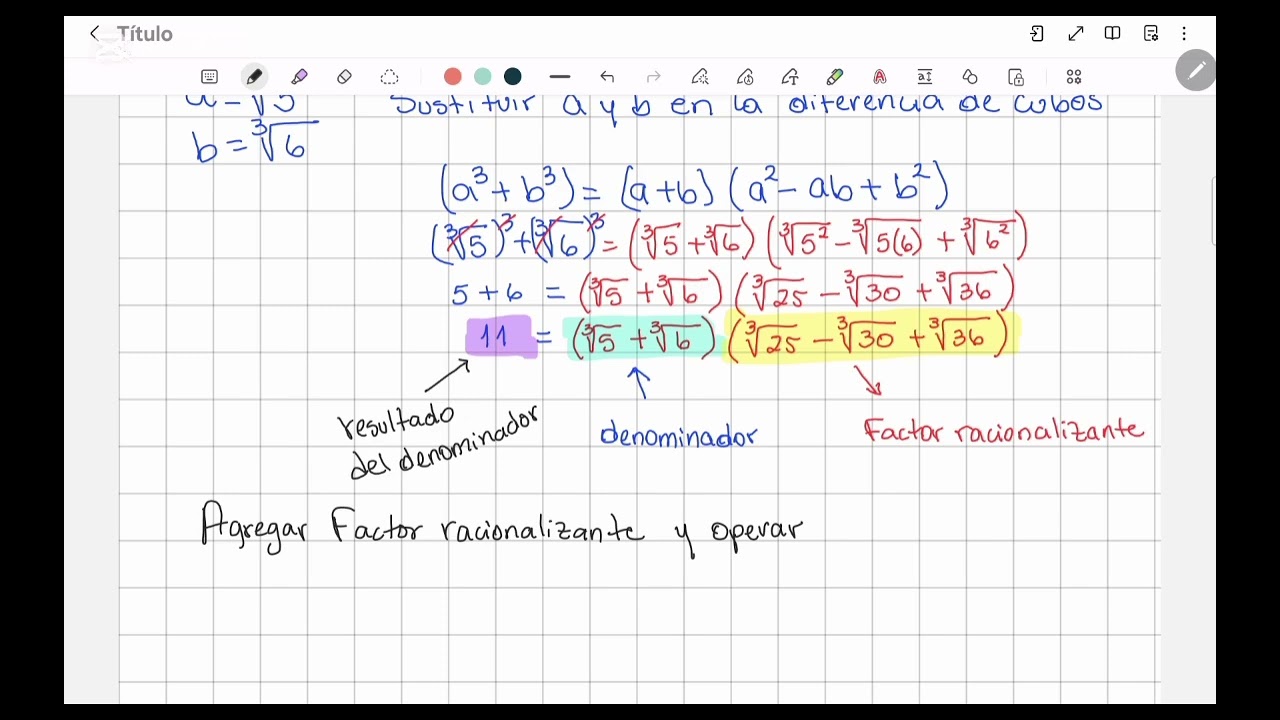 Título
a = ∛5 Sustituir a y b en la diferencia de cubos
b = ∛6
(a³ + b³) = (a + b) (a² - ab + b²)
(∛5)³ + (∛6)³ = (∛5 + ∛6) (∛5² - ∛5(6) + ∛6²)
5 + 6 = (∛5 + ∛6) (∛25 - ∛30 + ∛36)
11 = (∛5 + ∛6) (∛25 - ∛30 + ∛36)
resultado
del denominador
denominador
Factor racionalizante
Agregar Factor racionalizante y operar